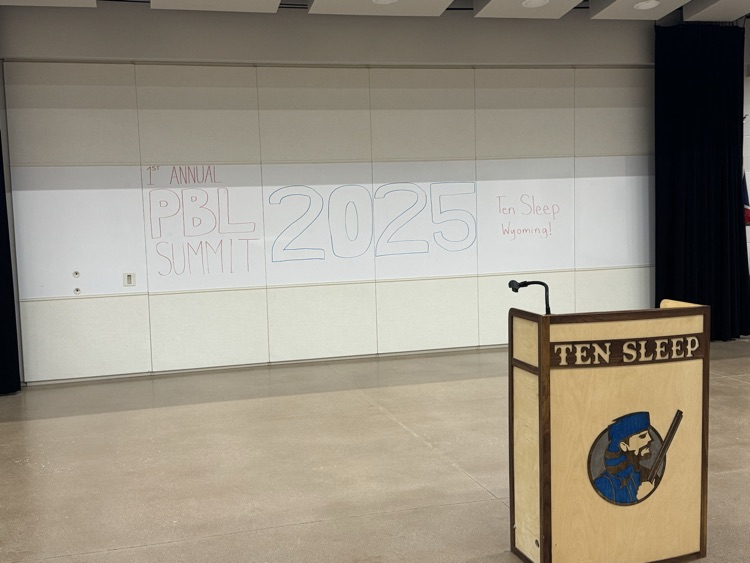 1ST ANNUAL
PBL
SUMMIT
2025
Ten Sleep
Wyoming!
TEN SLEEP